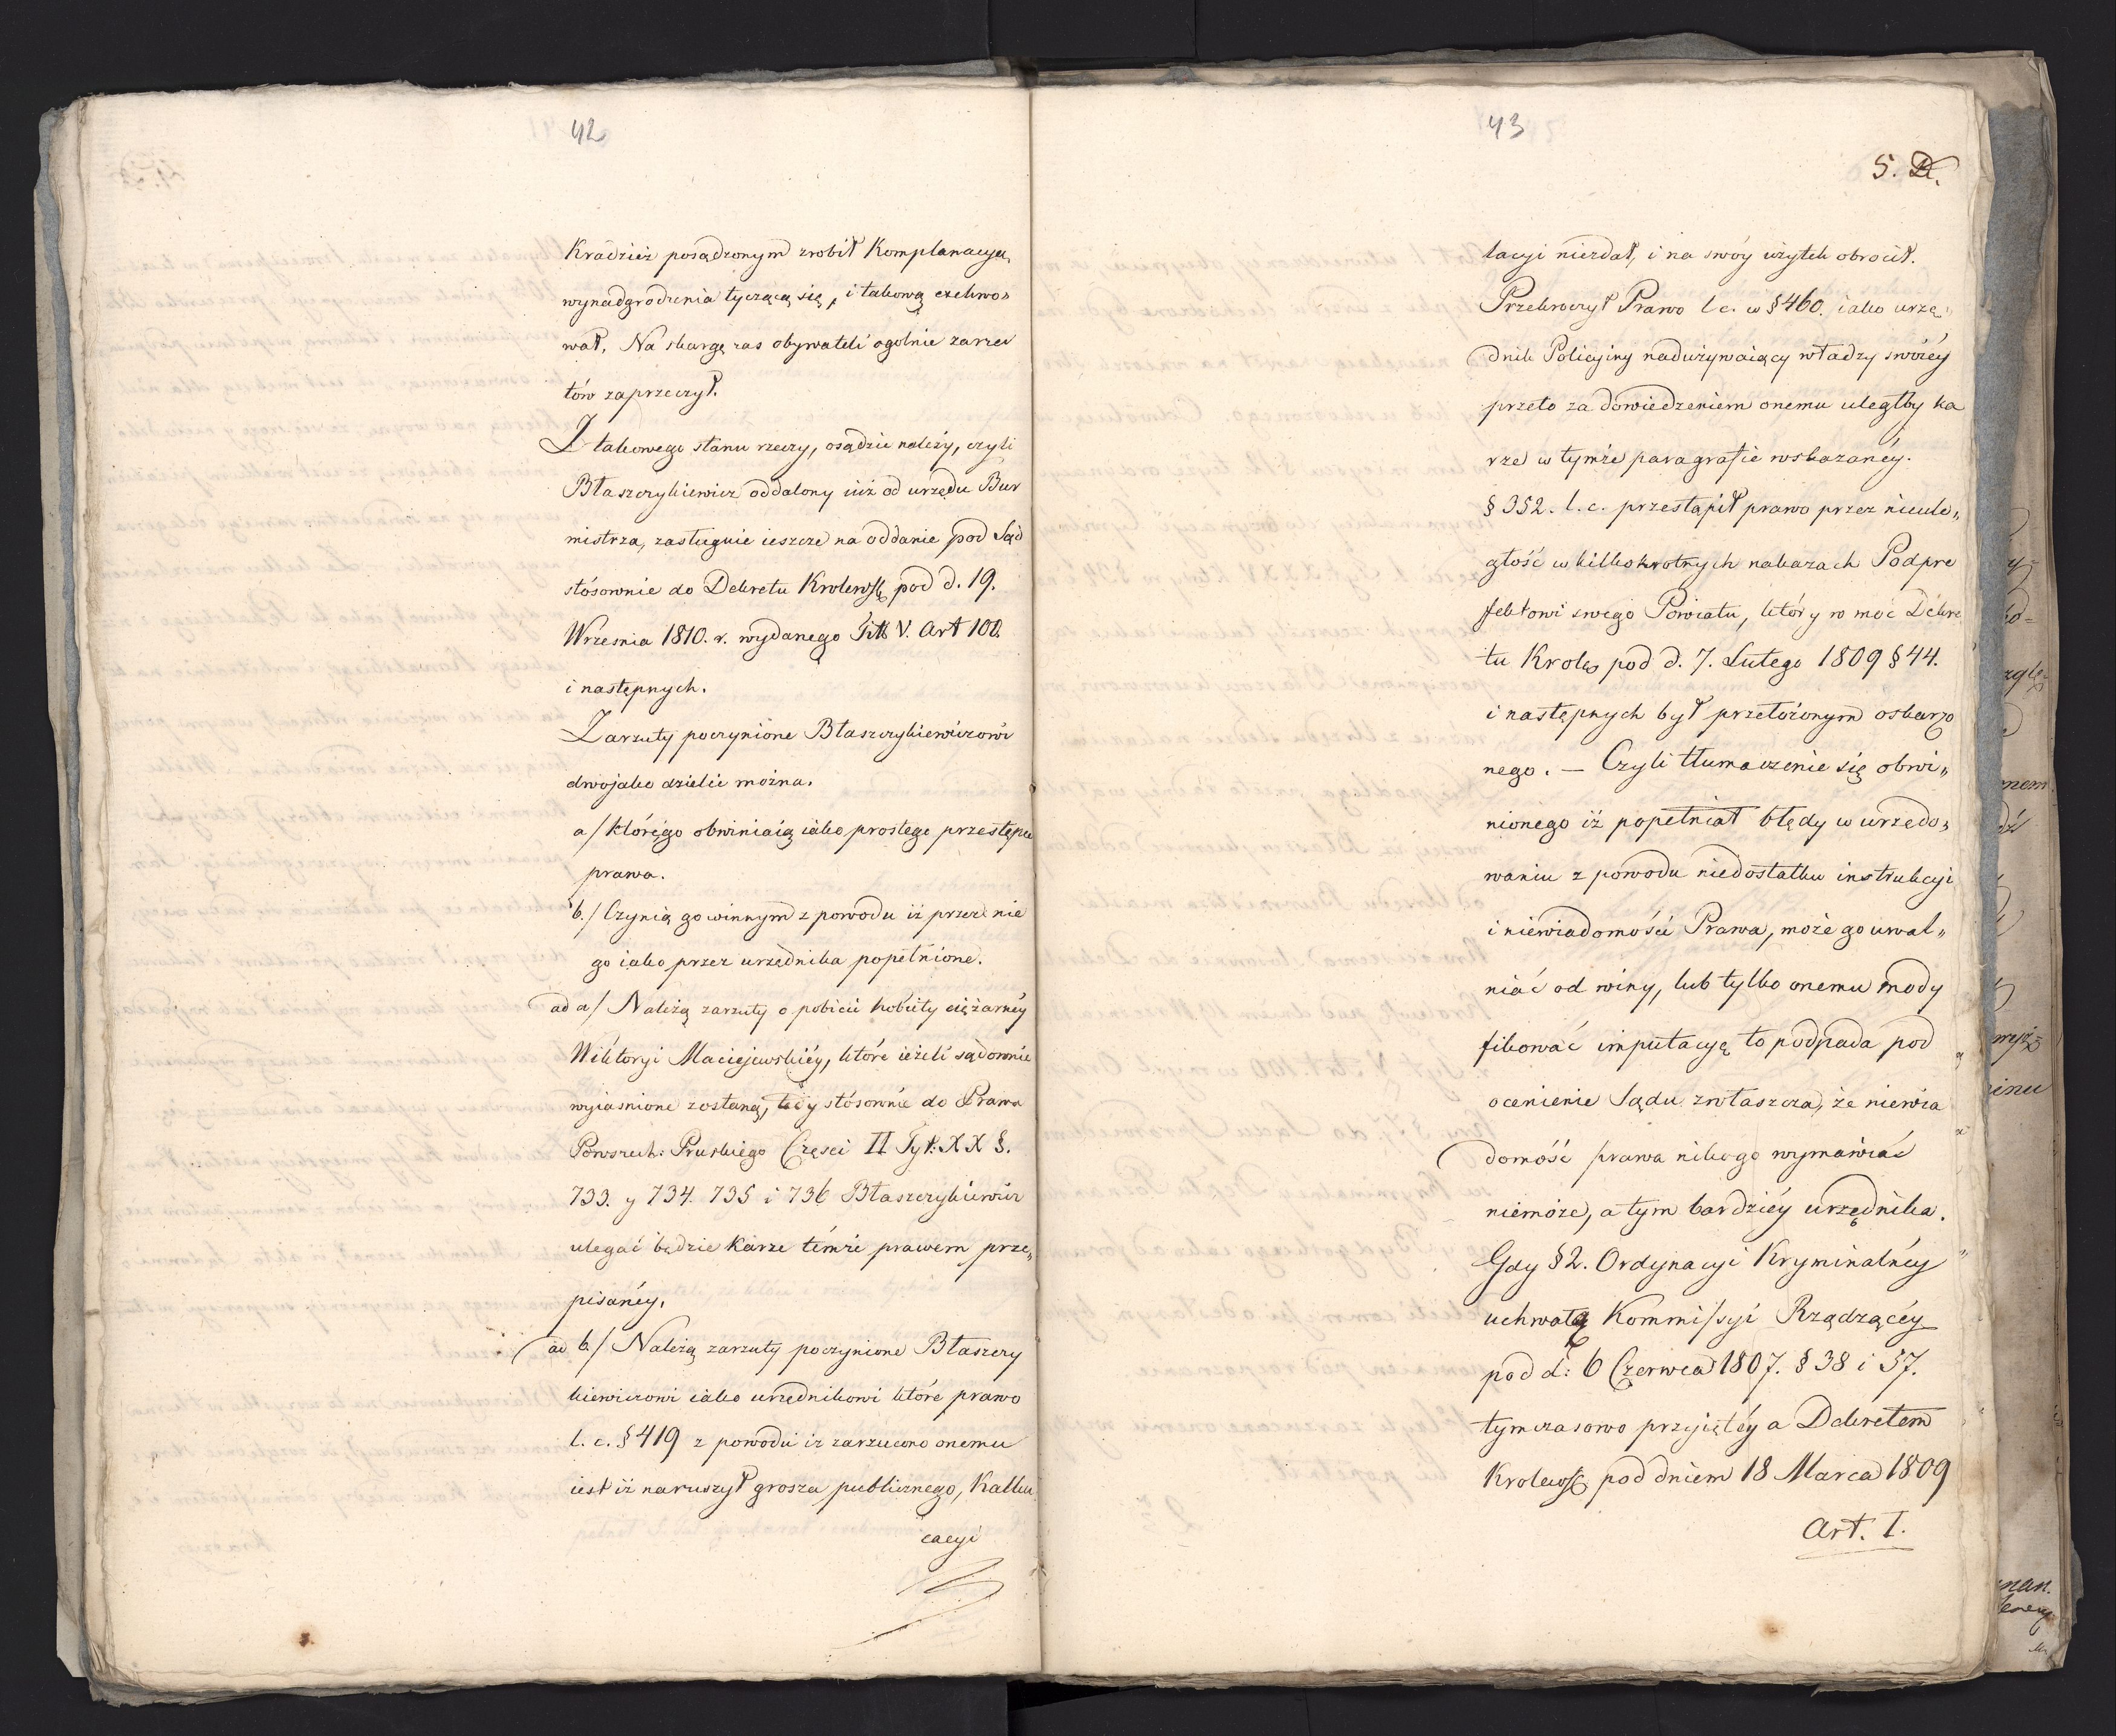 42
Kradzież posądzonym zrobił Komplanacyą
wynadgrodzenia tyczącą się, i takową exekwo„
wał. Na skargę zas obywateli ogolnie zarzu
tów zaprzeczył.
Z takowego stanu rzeczy, osądzić należy, czyli
Błaszczykiewicz oddalony iuż od urzędu Bur
mistrza, zasługuie ieszcze na oddanie pod Sąd
stósownie do Dekretu Krolewsk pod d. 19.
Wrzesnia 1810. r. wydanego Titt V. Art 100.
i następnych.
Zarzuty poczynione Błaszczykiewiczowi
dwojako dzielić można.
a/ którégo obwiniaią iako prostego przestępcę
prawa.
b./ Czynią go winnym z powodu iż przez nie
go iako przez urzędnika popełnione.
ad a/ Należą zarzuty o pobicie kobiéty ciężarnéy
Wiktoryi Maciejewskiéy, które ieżeli sądownie
wyiasnione zostaną, tedy stósownie do Prawa
Powszech: Pruskiego Części II Tyt: XX §.
733. y 734. 735 i 736 Błaszczykiewicz
ulegać będzie karze témże prawem prze„
pisanéy.
ad b/ Należą zarzuty poczynione Błaszczy
kiewiczowi iako urzędnikowi które prawo
l. c. § 419 z powodu iz zarzucono onemu
iest iż naruszył grosza publicznego, Kalku
cacyi
43
5.
lacyi niezdał, i na swóy użytek obrocił.
Przekroczył Prawo l c. w § 460. iako urzę„
dnik Policyiny nadużywaiący władzy swoiéy
przeto za dowiedzeniem onemu uległby ka
rze w tymże paragrafie wskazanéy.
§ 352. l. c. przestąpił prawo przez nieule„
głość w kilkokrotnych nakazach Podpre
fektowi swego Powiatu, który w moc Dekre
tu Krolew pod d. 7. Lutego 1809 § 44.
i następnych był przełożonym oskarżo
nego. — Czyli tłumaczenie się obwi„
nionego iż popełniał błędy w urzędo„
waniu z powodu niedostatku instrukcyi
i niewiadomości Prawa, może go uwal„
niać od winy, lub tylko onemu mody
fikować imputacyą to podpada pod
ocenienie Sądu zwłaszcza, że niewia
domość prawa nikogo wymawiać
niemoże, a tym bardziéy urzędnika.
Gdy § 2. Ordynacyi Kryminalnéy
uchwałą Kommissyi Rządzącéy
pod d: 6 Czerwca 1807. § 38 i 57.
tymczasowo przyiętéy a Dekretem
Krolewsk pod dniem 18 Marca 1809
Art. I.